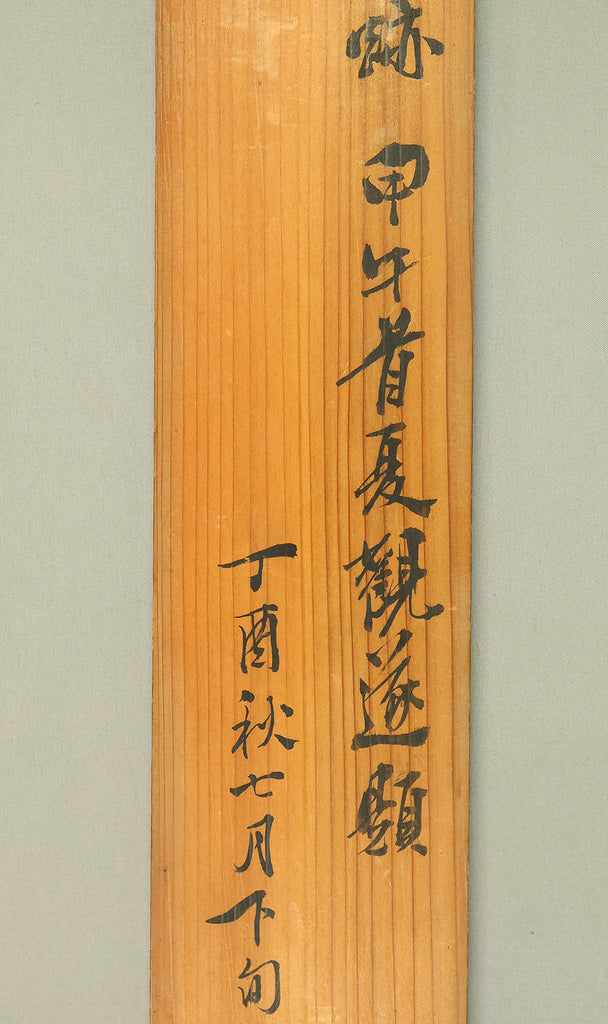 跡 甲午首夏觀遂題
丁酉秋七月下旬